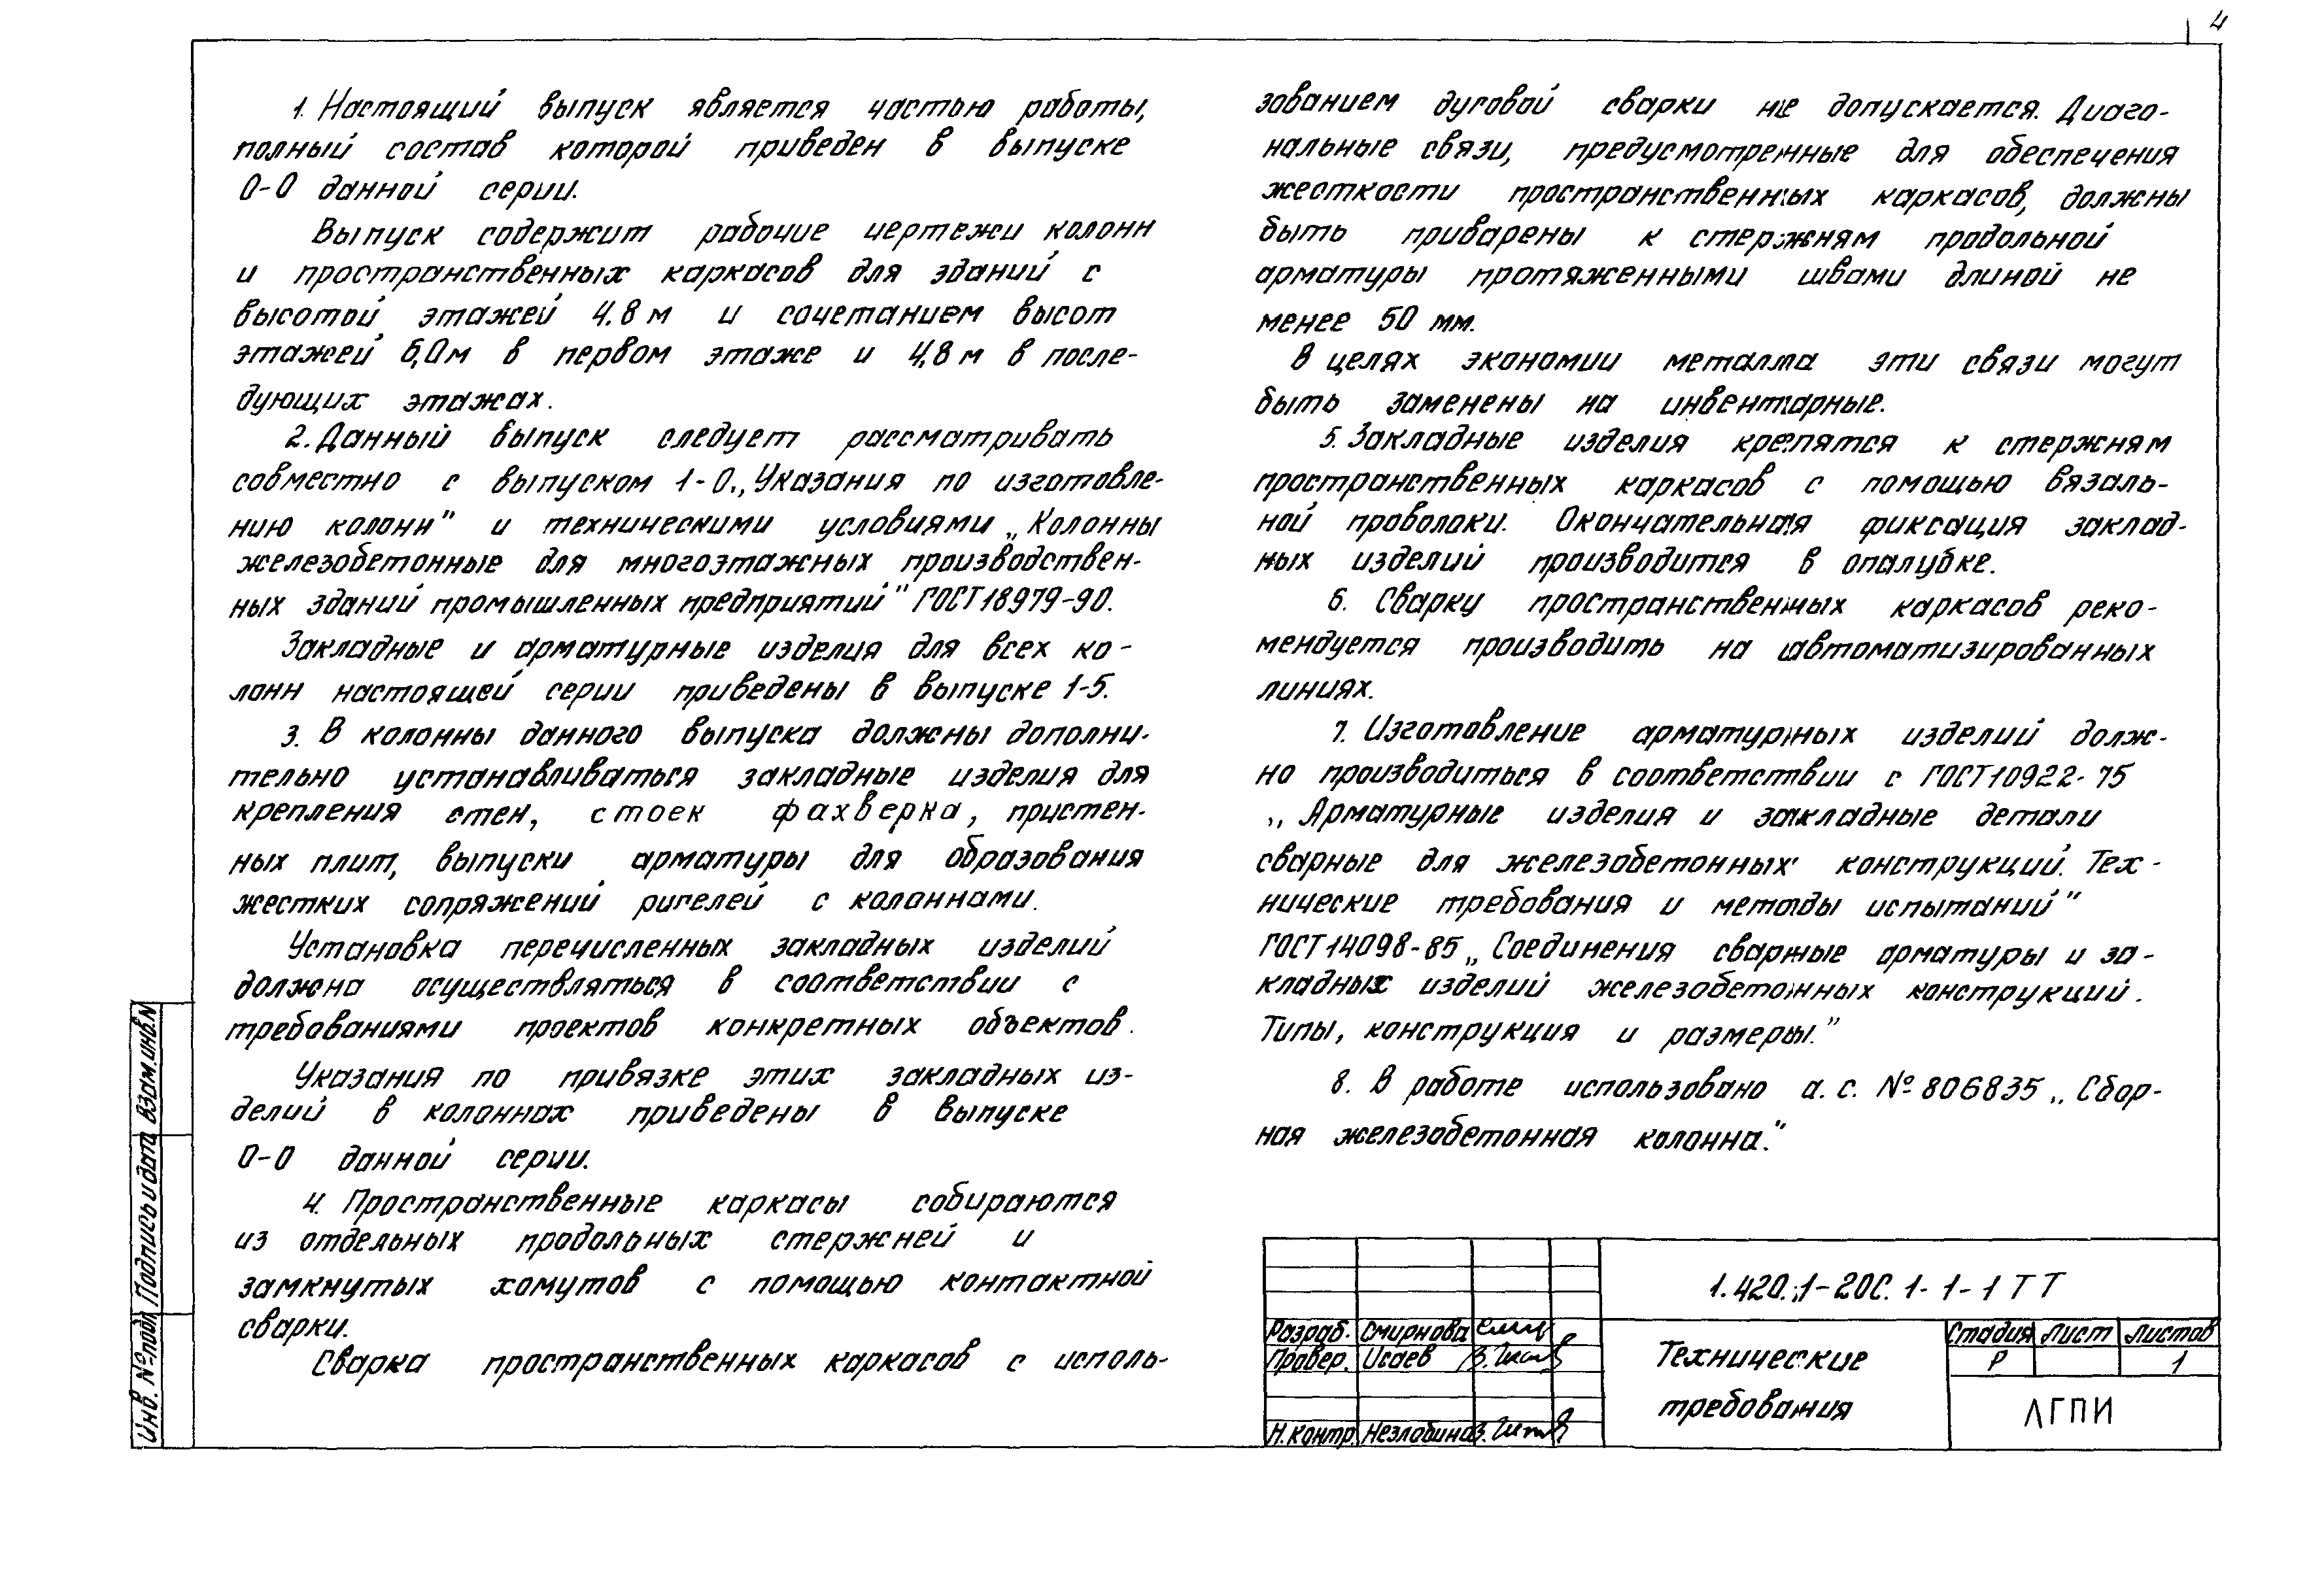 4
1. Настоящий выпуск является частью работы,
полный состав которой приведен в выпуске
0-0 данной серии.
Выпуск содержит рабочие чертежи колонн
и пространственных каркасов для зданий с
высотой этажей 4.8 м и сочетанием высот
этажей 6,0м в первом этаже и 4,8 м в после-
дующих этажах.
2. Данный выпуск следует рассматривать
совместно с выпуском 1-0 „Указания по изготовле-
нию колонн" и техническими условиями „Колонны
железобетонные для многоэтажных производствен-
ных зданий промышленных предприятий" ГОСТ 18979-90.
Закладные и арматурные изделия для всех ко-
лонн настоящей серии приведены в выпуске 1-5.
3. В колонны данного выпуска должны дополни-
тельно устанавливаться закладные изделия для
крепления стен, стоек фахверка, пристен-
ных плит, выпуски арматуры для образования
жестких сопряжений ригелей с колоннами.
Установка перечисленных закладных изделий
должна осуществляться в соответствии с
требованиями проектов конкретных объектов.
Указания по привязке этих закладных из-
делий в колоннах приведены в выпуске
0-0 данной серии.
4. Пространственные каркасы собираются
из отдельных продольных стержней и
замкнутых хомутов с помощью контактной
сварки.
Сварка пространственных каркасов с исполь-
зованием дуговой сварки не допускается. Диаго-
нальные связи, предусмотренные для обеспечения
жесткости пространственных каркасов, должны
быть приварены к стержням продольной
арматуры протяженными швами длиной не
менее 50 мм.
В целях экономии металла эти связи могут
быть заменены на инвентарные.
5. Закладные изделия крепятся к стержням
пространственных каркасов с помощью вязаль-
ной проволоки. Окончательная фиксация заклад-
ных изделий производится в опалубке.
6. Сварку пространственных каркасов реко-
мендуется производить на автоматизированных
линиях.
7. Изготовление арматурных изделий долж-
но производиться в соответствии с ГОСТ 10922-75
„Арматурные изделия и закладные детали
сварные для железобетонных конструкций. Тех-
нические требования и методы испытаний"
ГОСТ 14098-85 „Соединения сварные арматуры и за-
кладных изделий железобетонных конструкций.
Типы, конструкция и размеры."
8. В работе использовано а.с. № 806835 „Сбор-
ная железобетонная колонна."
Инв. № подл. Подпись и дата Взам. инв. N
1.420.1-20С. 1-1-1 ТТ
Разраб. Смирнова
Провер. Исаев
Н. контр. Незлобина
Технические
требования
Стадия Лист Листов
Р 1
ЛГПИ